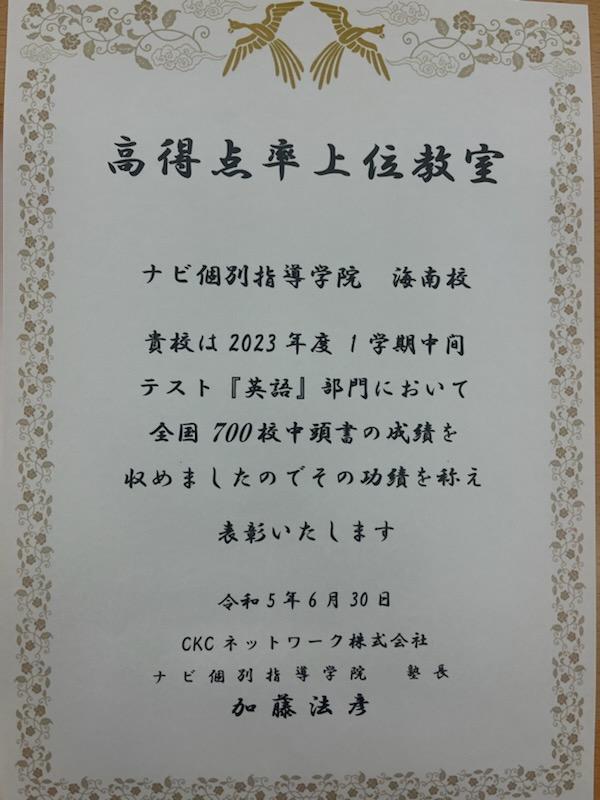 高得点率上位教室
ナビ個別指導学院　海南校
貴校は2023年度 1学期中間
テスト『英語』部門において
全国 700校中頭書の成績を
収めましたのでその功績を称え
表彰いたします
令和5年6月30日
CKCネットワーク株式会社
ナビ個別指導学院　塾長
加藤法彦